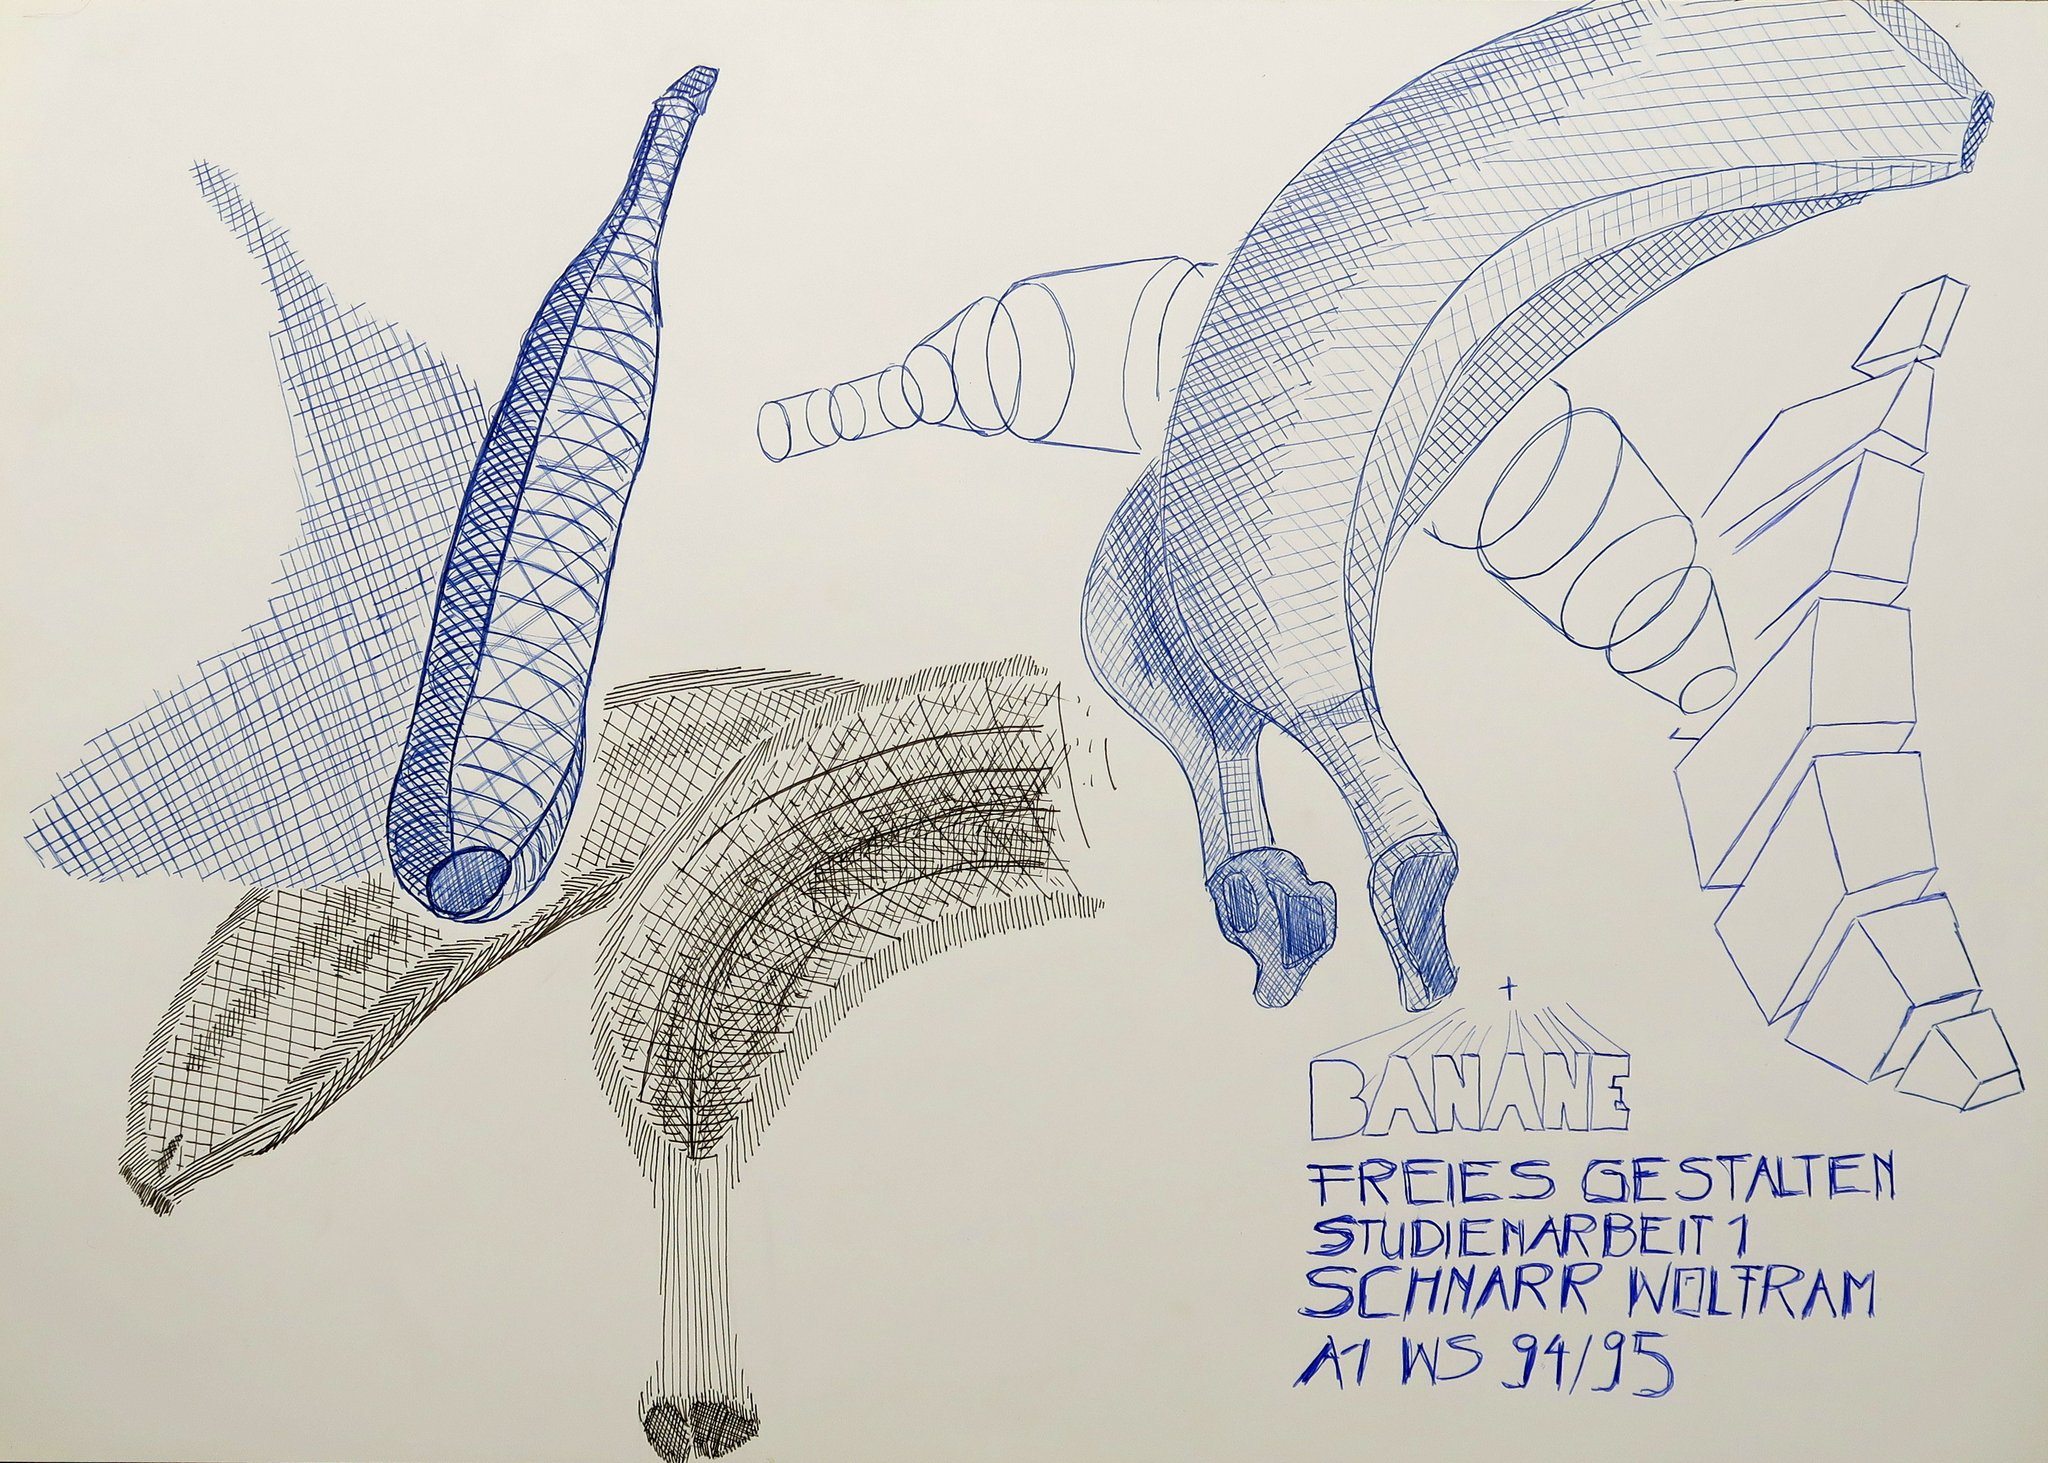 BANANE
FREIES GESTALTEN
STUDIENARBEIT 1
SCHNARR WOLFRAM
A1 WS 94/95